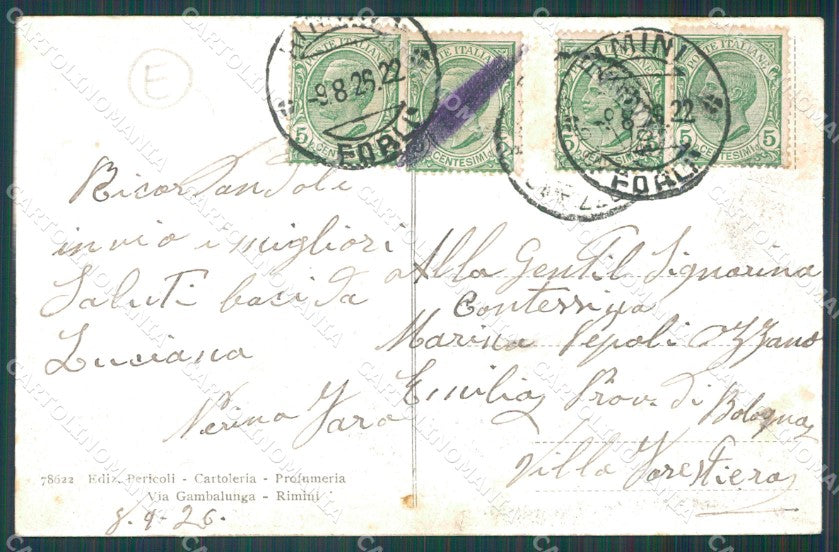 E
POSTE ITALIANE
5
CENTESIMI
POSTE ITALIANE
CENTESIMI 5
POSTE ITALIANE
5 CENTESIMI
POSTE ITALIANE
CENTESIMI 5
-9 8 26.22
FORLI
RIMINI
22
FORLI
Ricordandoli
invio i migliori
Saluti baci da
Luciana
Nerina
Alla Gentil Signorina
Contessina
Marina Pepoli
Emilia Prov. di Bologna
Villa
78622 Ediz. Pericoli - Cartoleria - Profumeria
Via Gambalunga - Rimini
8.9-26.
CARTOLINOMANIA